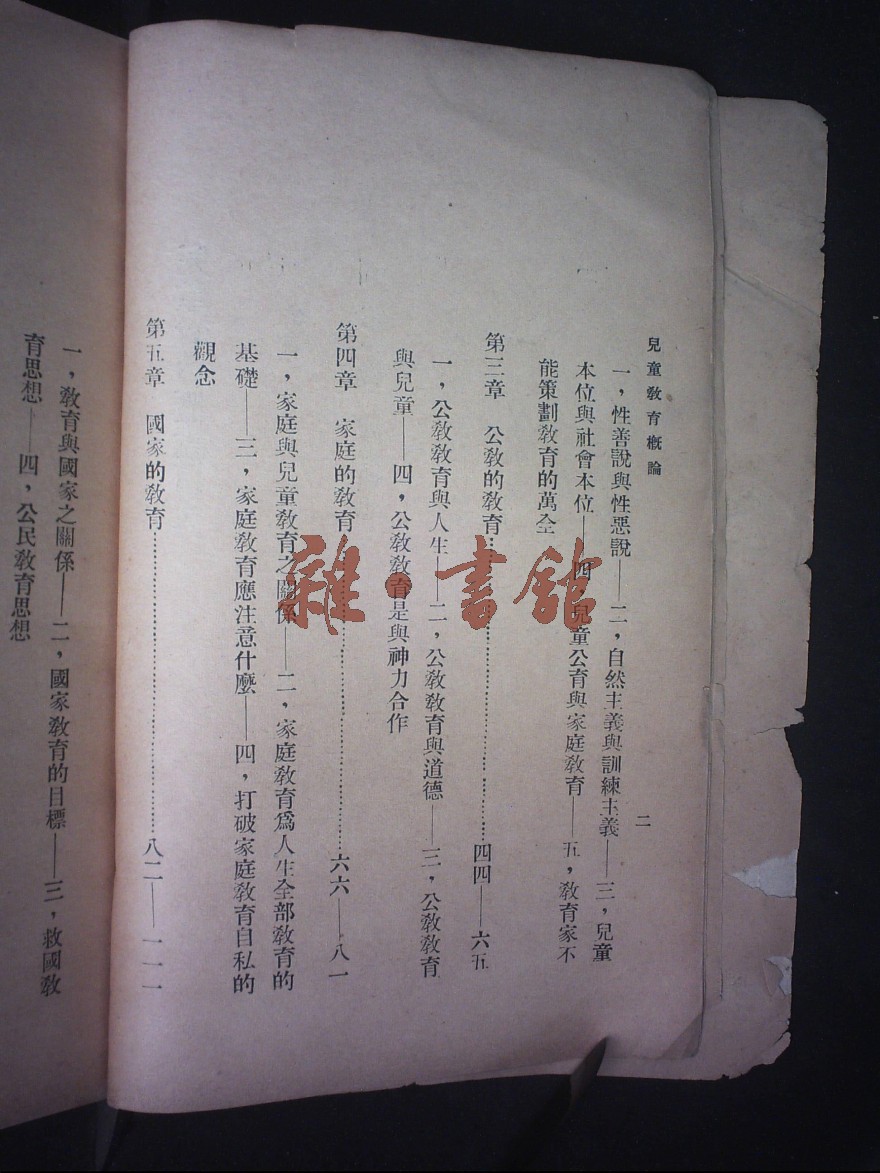 兒童敎育槪論
二
一，性善說與性惡說——二，自然主義與訓練主義——三，兒童
本位與社會本位——四，兒童公育與家庭敎育——五，敎育家不
能策劃敎育的萬全
第三章　公敎的敎育……………………四四——六五
一，公敎敎育與人生——二，公敎敎育與道德——三，公敎敎育
與兒童——四，公敎敎育是與神力合作
第四章　家庭的敎育……………………六六——八一
一，家庭與兒童敎育之關係——二，家庭敎育爲人生全部敎育的
基礎——三，家庭敎育應注意什麼——四，打破家庭敎育自私的
觀念
第五章　國家的敎育……………………八二——一一一
一，敎育與國家之關係——二，國家敎育的目標——三，救國敎
育思想——四，公民敎育思想
雜·書館